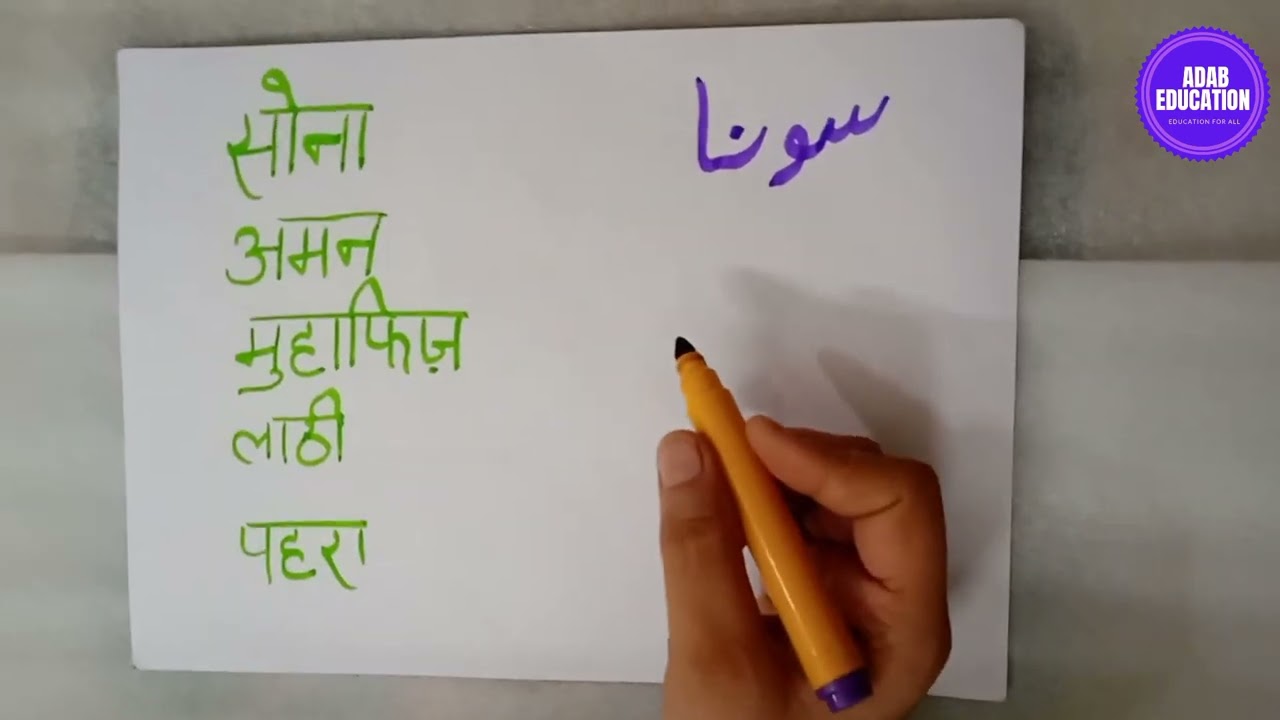 सोना سونا
अमन
मुहाफिज़
लाठी
पहरा
ADAB
EDUCATION
EDUCATION FOR ALL